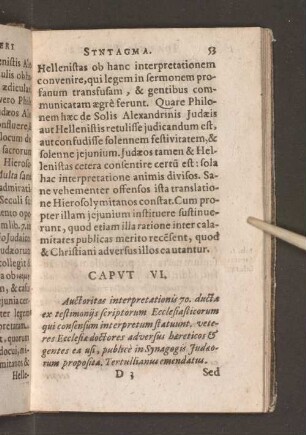 SYNTAGMA. 53
Hellenistas ob hanc interpretationem
convenire, qui legem in sermonem pro-
fanum transfusam, & gentibus com-
municatam ægrè ferunt. Quare Philo-
nem hæc de Solis Alexandrinis Judæis
aut Hellenistis retulisse judicandum est,
aut confudisse solennem festivitatem, &
solenne jejunium. Judæos tamen & Hel-
lenistas cetera consentire certū est: sola
hac interpretatione animis divisos. Sa-
ne vehementer offensos ista translatio-
ne Hierosolymitanos constat. Cum pro-
pter illam jejunium instituere sustinue-
runt, quod etiam illa ratione inter cala-
mitates publicas merito recēsent, quod
& Christiani adversus illos ea utantur.
CAPUT VI.
Auctoritas interpretationis 70. ducta
ex testimonijs scriptorum Ecclesiasticorum
qui consensum interpretum statuunt. vete-
res Ecclesiæ doctores adversus hæreticos &
gentes ea usi, publicè in Synagogis Judæo-
rum proposita. Tertullianus emendatus.
D 3 Sed